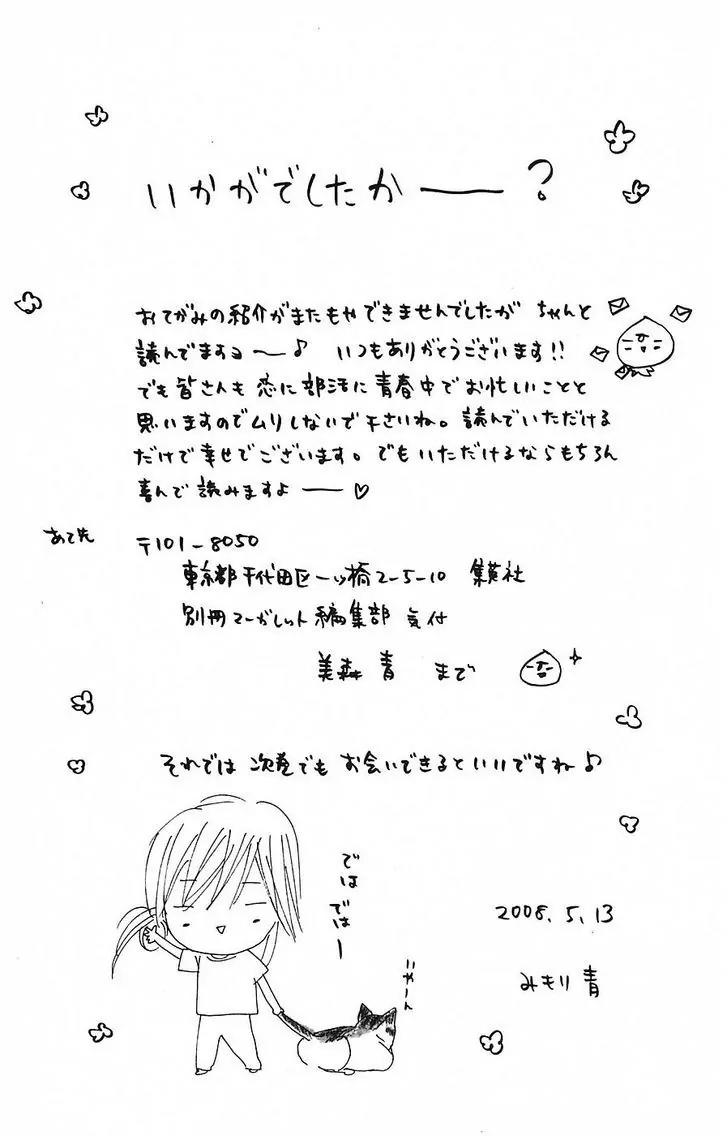 いかがでしたか――?
おてがみの紹介がまたもやできませんでしたが ちゃんと
読んでますョ〜♪ いつもありがとうございます!!
でも皆さんも 恋に部活に青春中でお忙しいことと
思いますのでムリしないで下さいね。読んでいただける
だけで幸せでございます。でもいただけるならもちろん
喜んで読みますよ――♡
あて先 〒101-8050
東京都千代田区一ツ橋2-5-10 集英社
別冊マーガレット編集部 気付
美森 青 まで
それでは 次巻でも お会いできるといいですね♪
ではではー
いやーん
2008.5.13
みもり 青